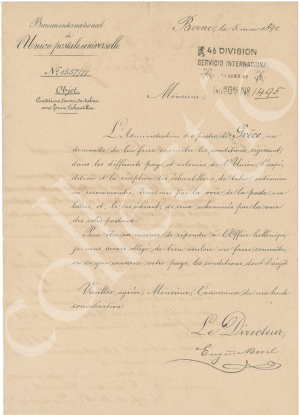 Bureau international
de
l'Union postale universelle
Nº 1557/77
Objet
Conditions d'envoi du tabac
sous forme d'échantillon
Berne, le 5 1891
4ª DIVISION
SERVICIO INTERNACIONAL
Nº 1495
Monsieur,
L'Administration des postes de Grèce me
demande de lui faire connaître les conditions régissant,
dans les différents pays et colonies de l'Union, l'expé-
dition et la réception des échantillons de tabac, ordinaires
ou recommandés, transmis par la voie de la poste aux
lettres, et, le cas échéant, de ceux acheminés par la voie
des colis postaux.
Pour être en mesure de répondre à l'Office hellénique,
je vous serais obligé de bien vouloir me faire connaître,
en ce qui concerne votre pays, les conditions dont il s'agit.
Veuillez agréer, Monsieur, l'assurance de ma haute
considération.
Le Directeur,
Eugène Borel